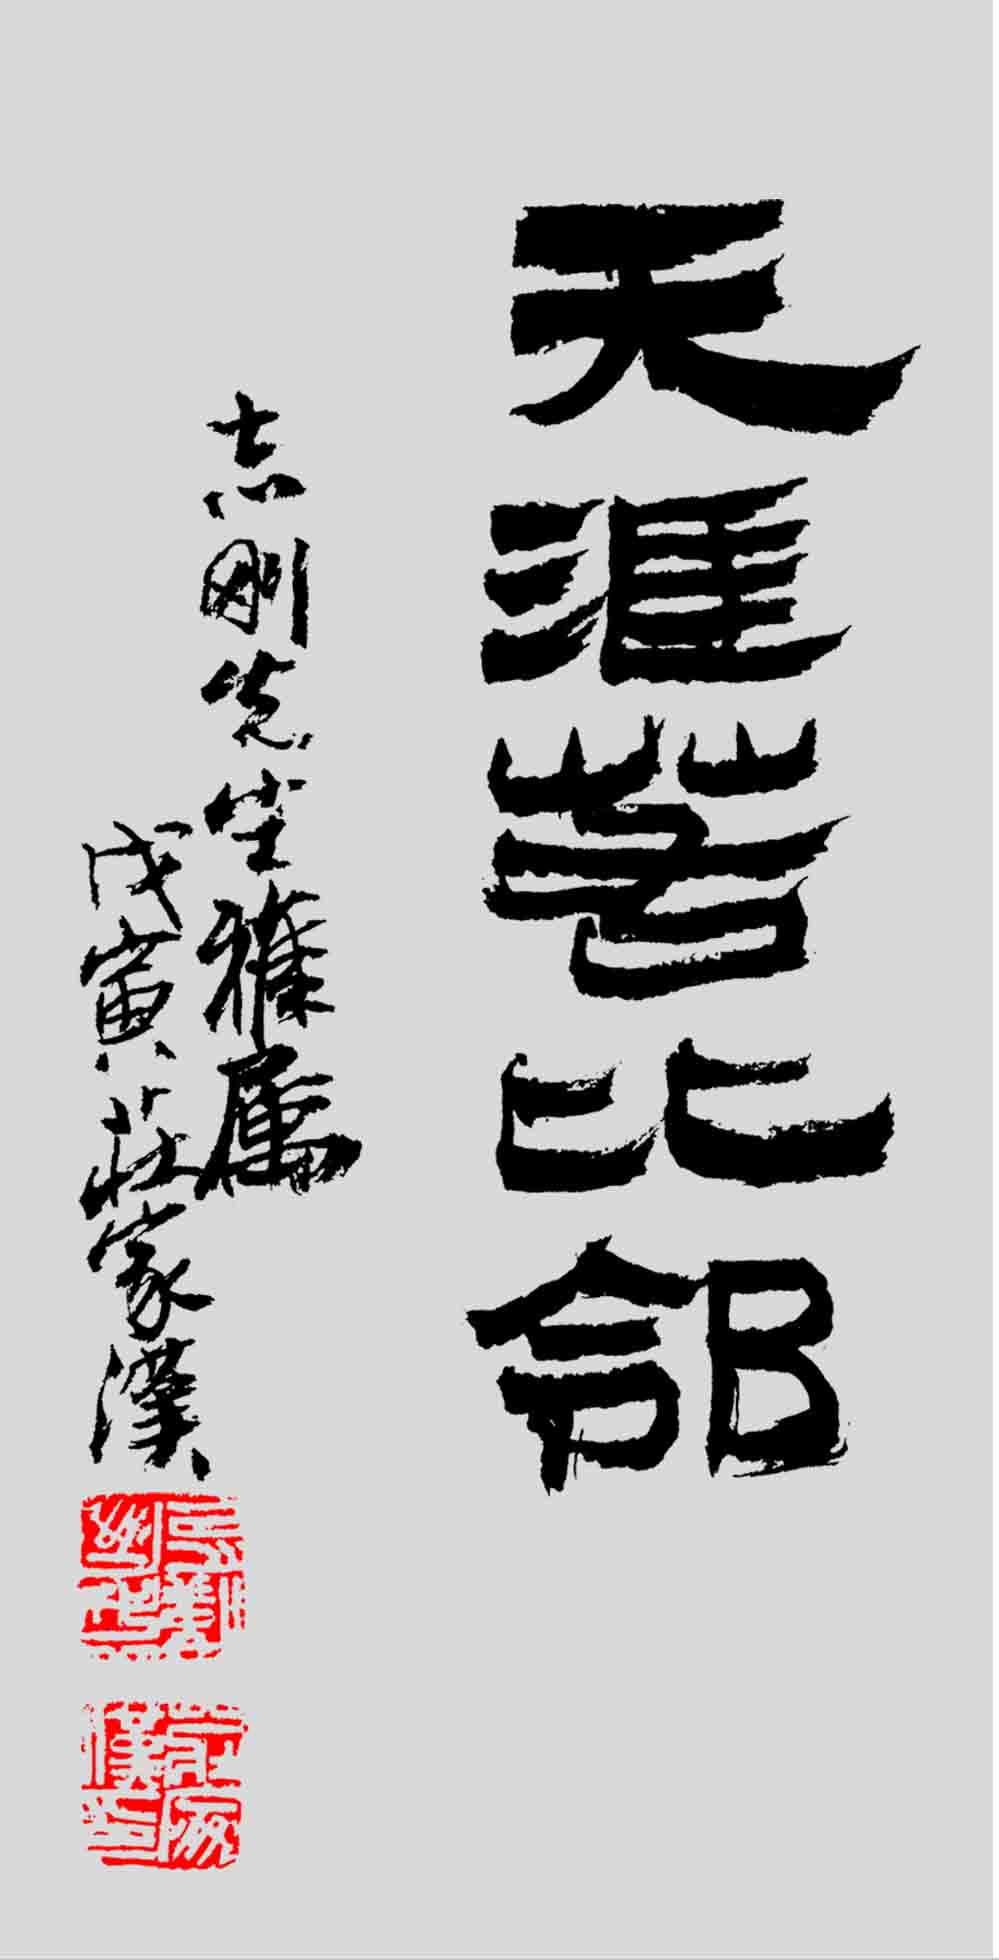 天涯若比邻
志刚先生雅属
戊寅莊家漢